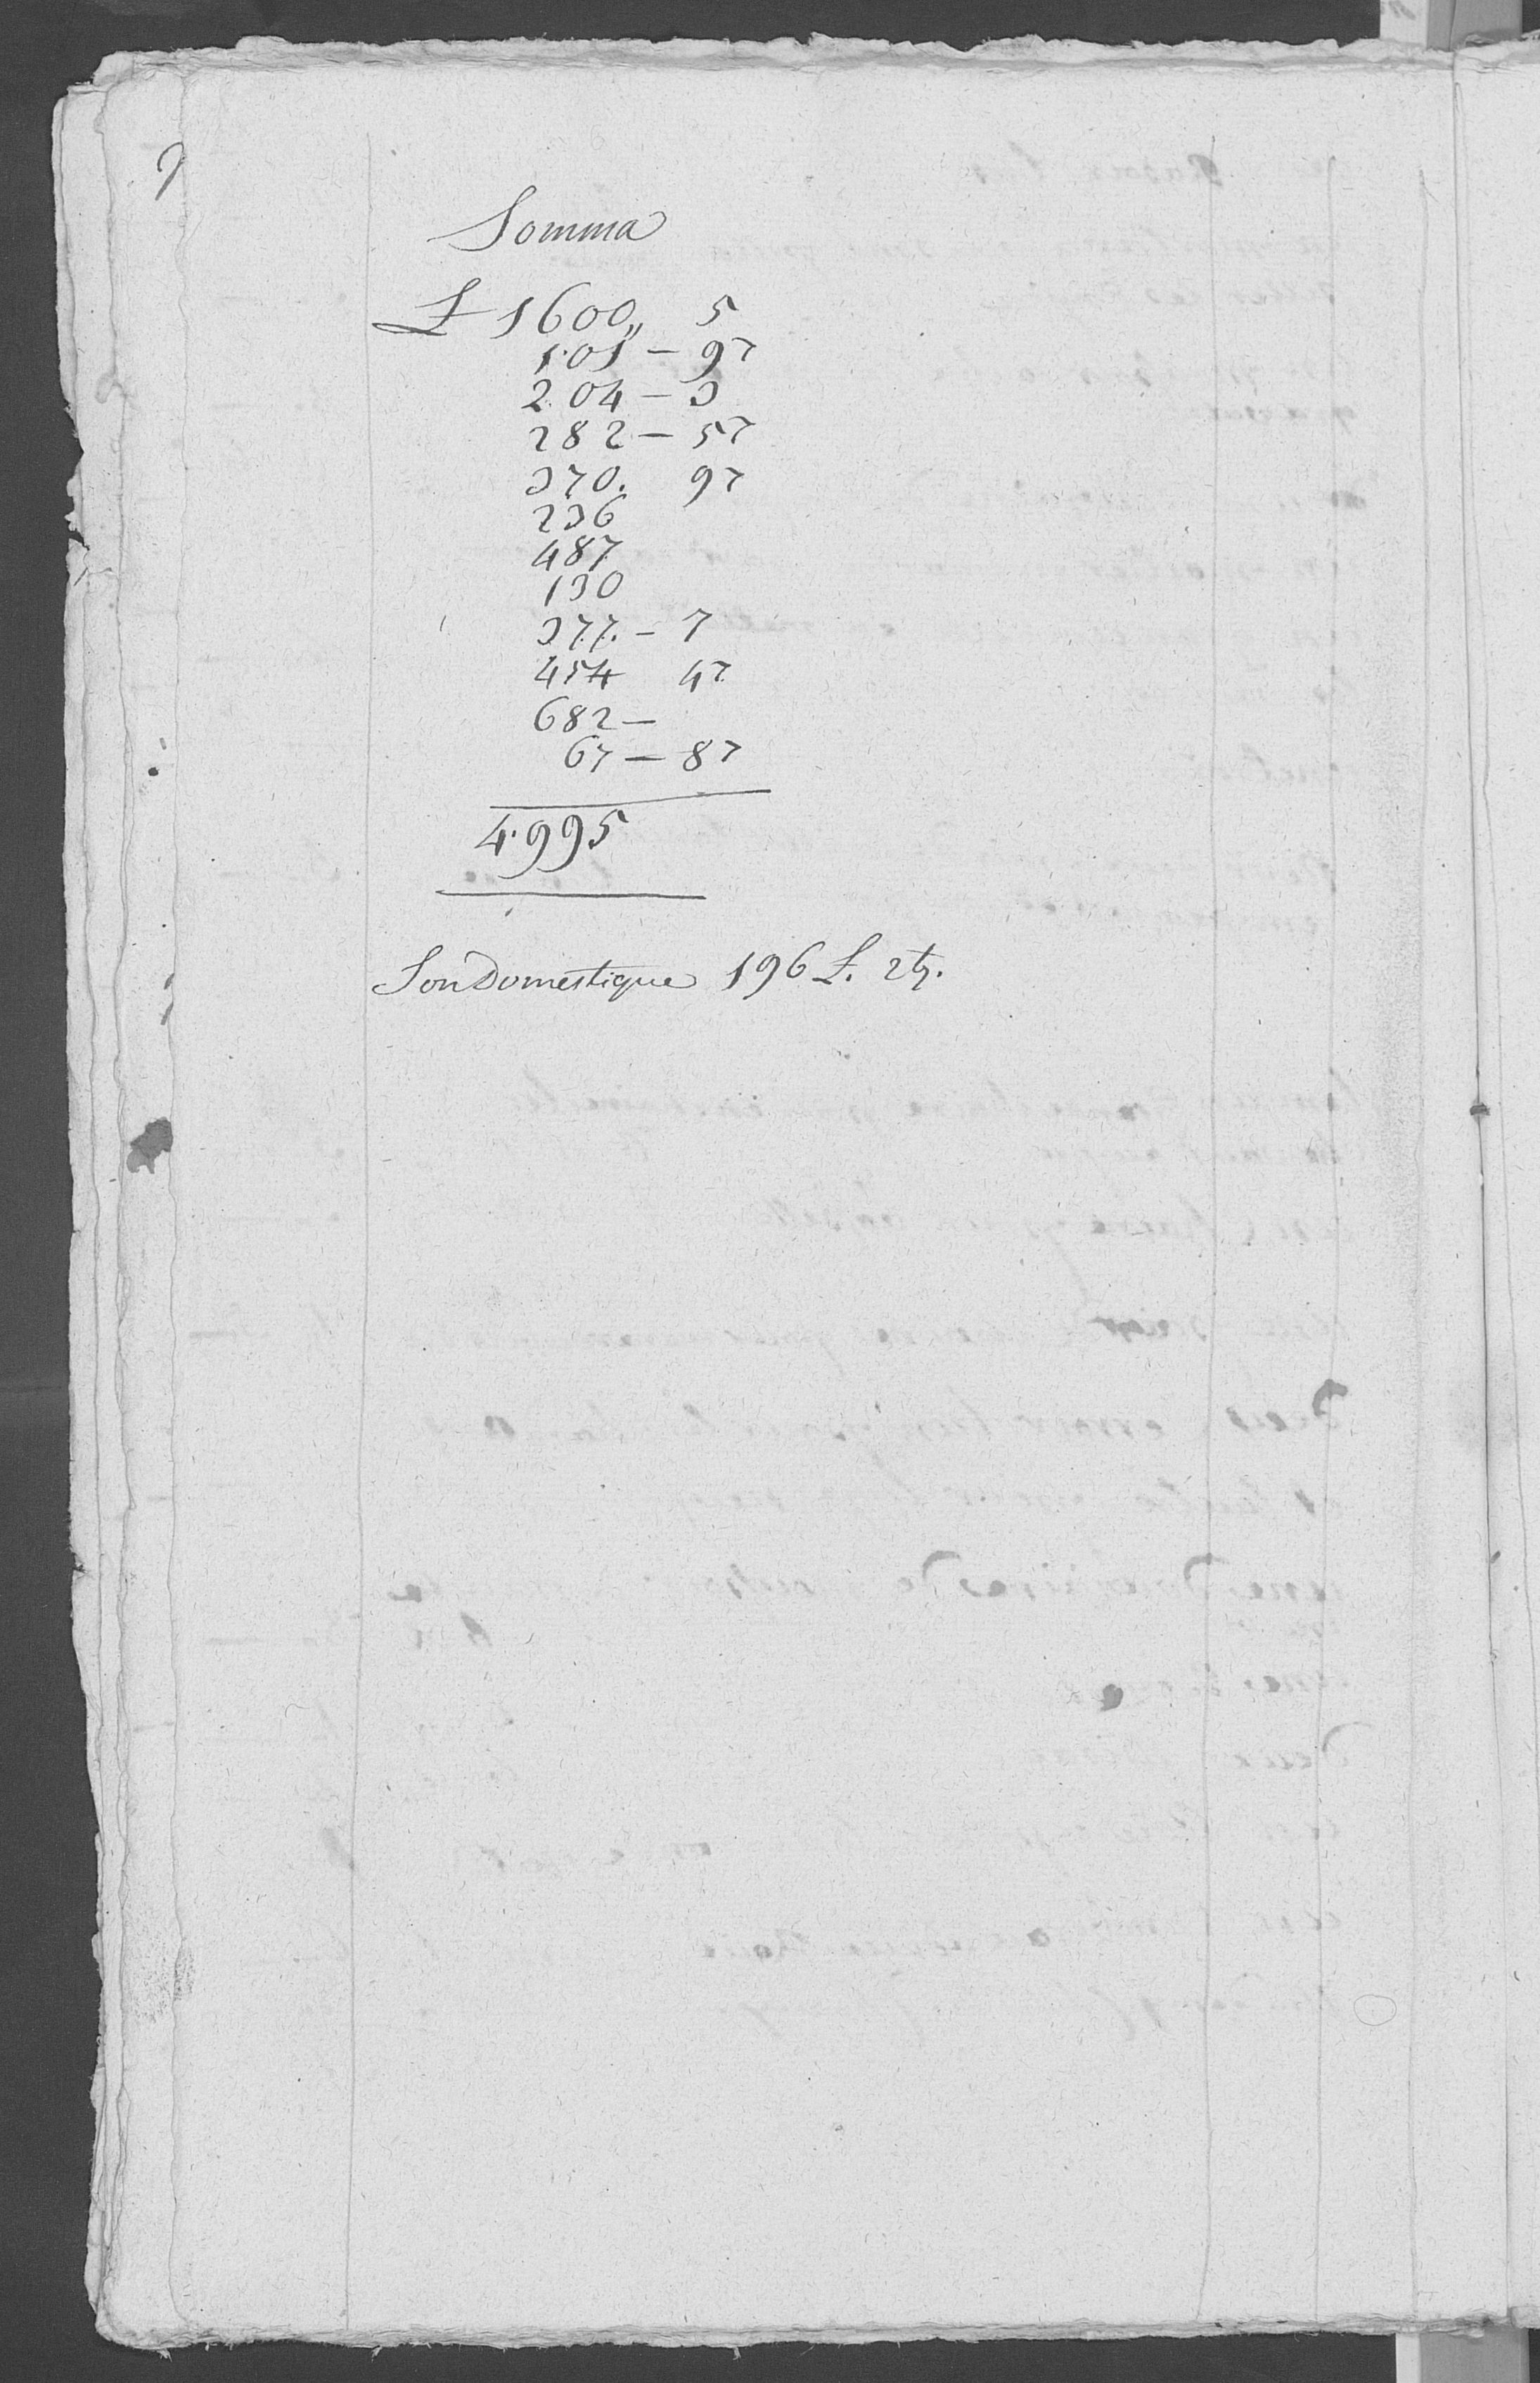 9
Somma
£ 1600,, 5
101 - 97
204 - 3
282 - 57
370. 97
236
487
130
377. - 7
454 47
682 -
67 - 87
4995
Son Domestique 196 £.